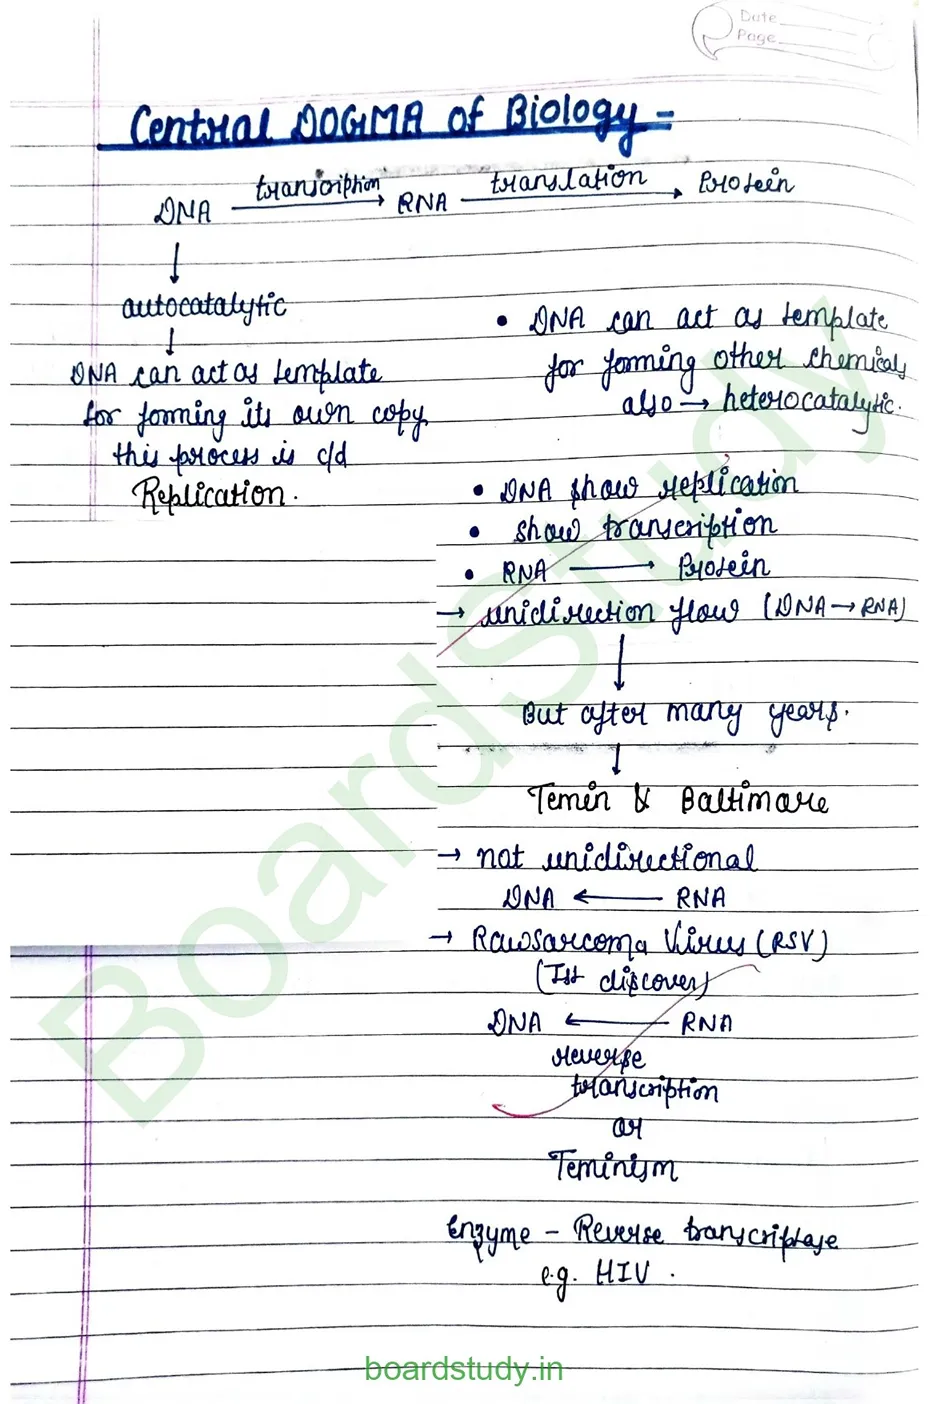 Date
Page
Central DOGMA of Biology -
DNA transcription → RNA translation → Protein
↓
autocatalytic
↓
DNA can act as template
for forming its own copy
this process is c/d
Replication.
• DNA can act as template
for forming other chemicals
also → heterocatalytic.
• DNA show replication
• show transcription
• RNA → Protein
→ unidirection flow (DNA → RNA)
↓
But after many years.
↓
Temin & Baltimare
→ not unidirectional
DNA ← RNA
→ Rausarcoma Virus (RSV)
(Ist discover)
DNA ← RNA
reverse
transcription
or
Teminism
Enzyme - Reverse transcriptase
e.g. HIV .
BoardStudy
boardstudy.in